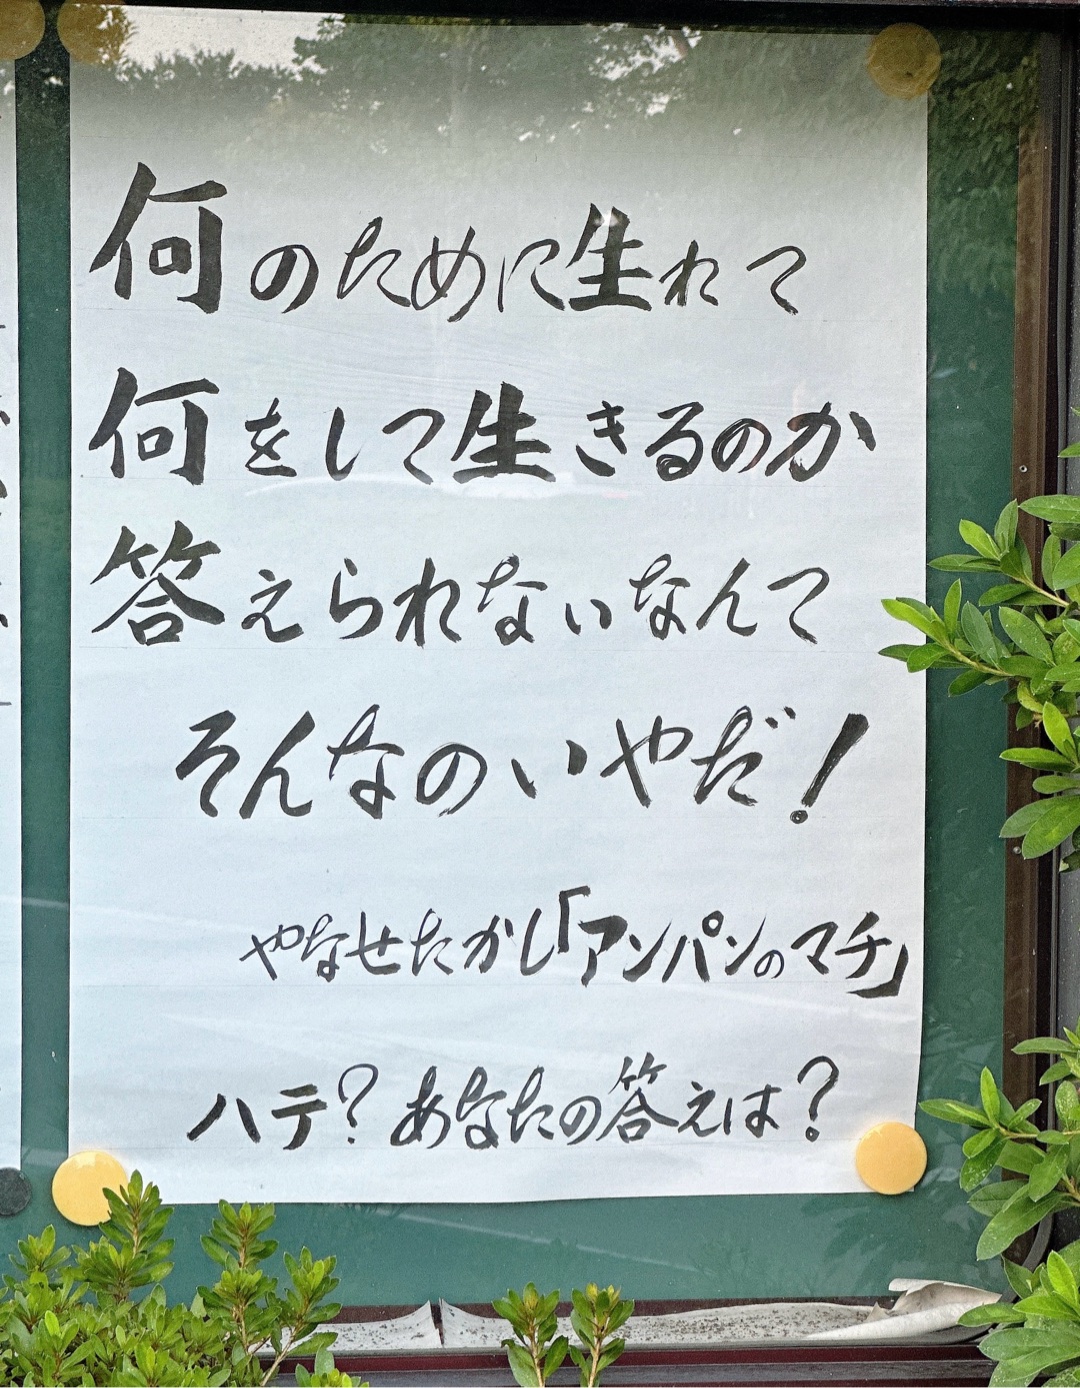 何のために生れて
何をして生きるのか
答えられないなんて
そんなのいやだ!
やなせたかし「アンパンのマチ」
ハテ?あなたの答えは?